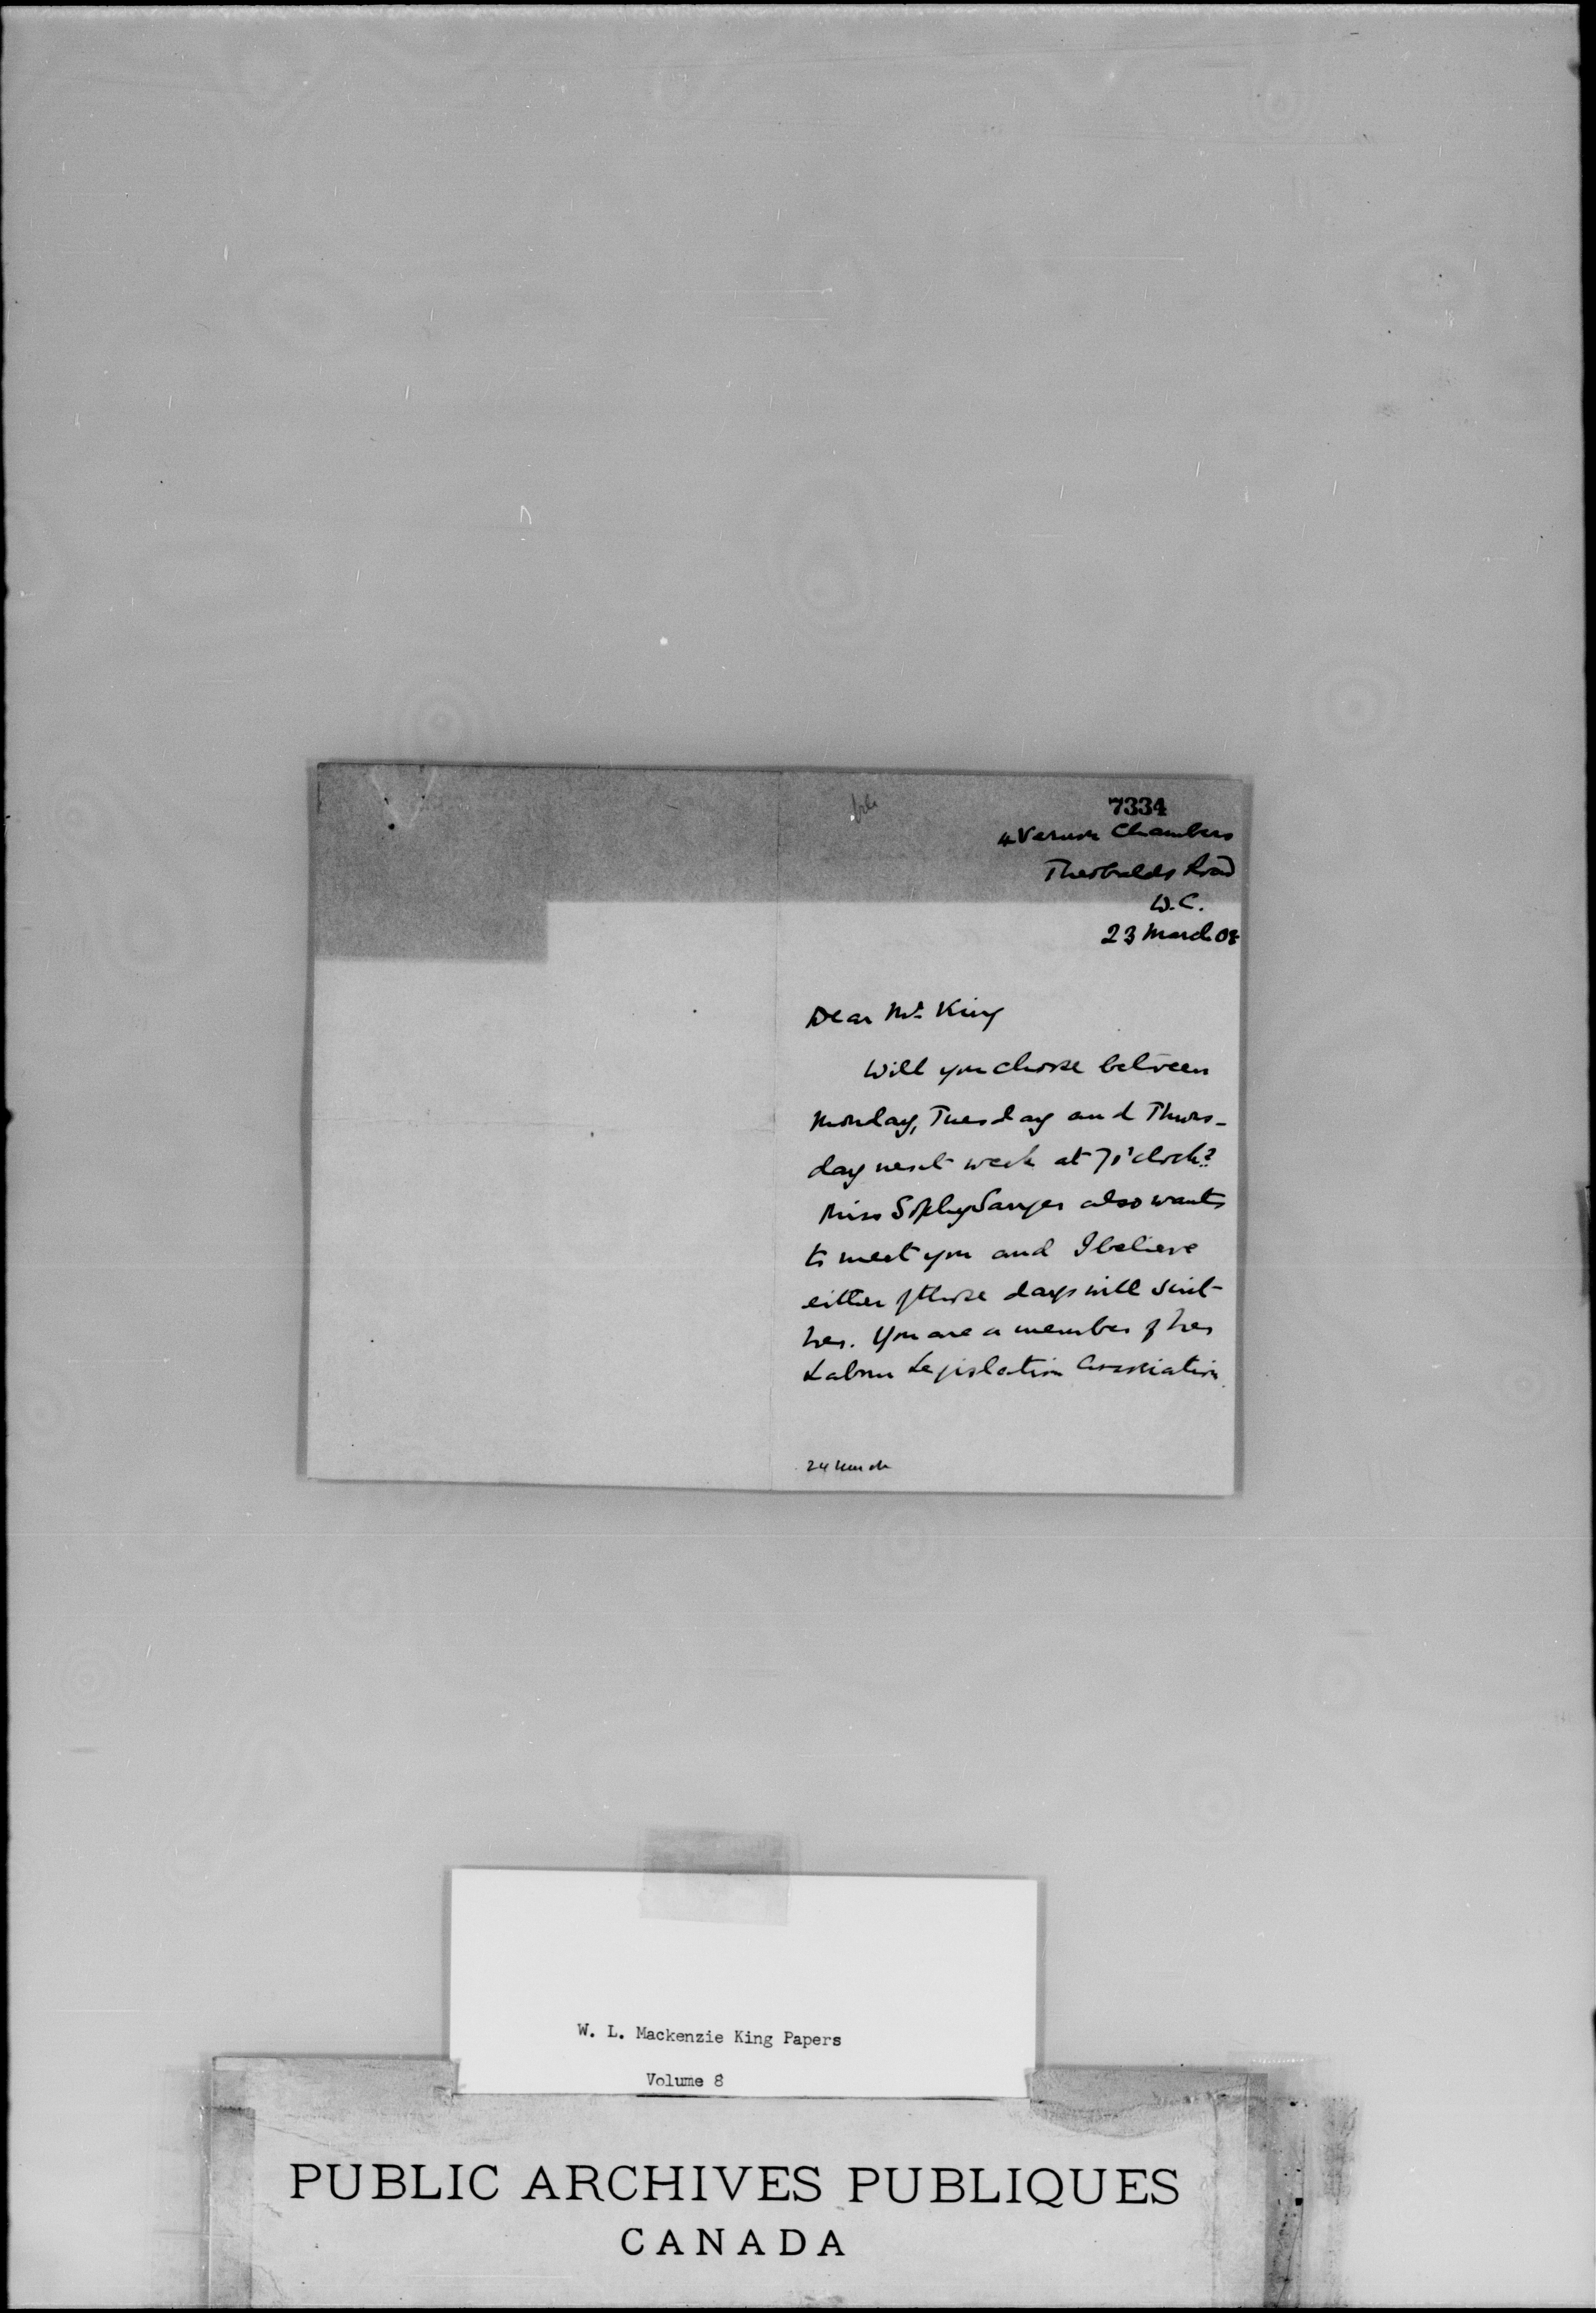 7334
4 Vernon Chambers
Theobalds Road
W.C.
23 March 08
Dear Mr. King
Will you choose between
Monday, Tuesday and Thurs-
day next week at 7 o'clock?
Miss Sophy Sanger also wants
to meet you and I believe
either of those days will suit
her. You are a member of her
Labour Legislation Association.
24 March
W. L. Mackenzie King Papers
Volume 8
PUBLIC ARCHIVES PUBLIQUES
CANADA